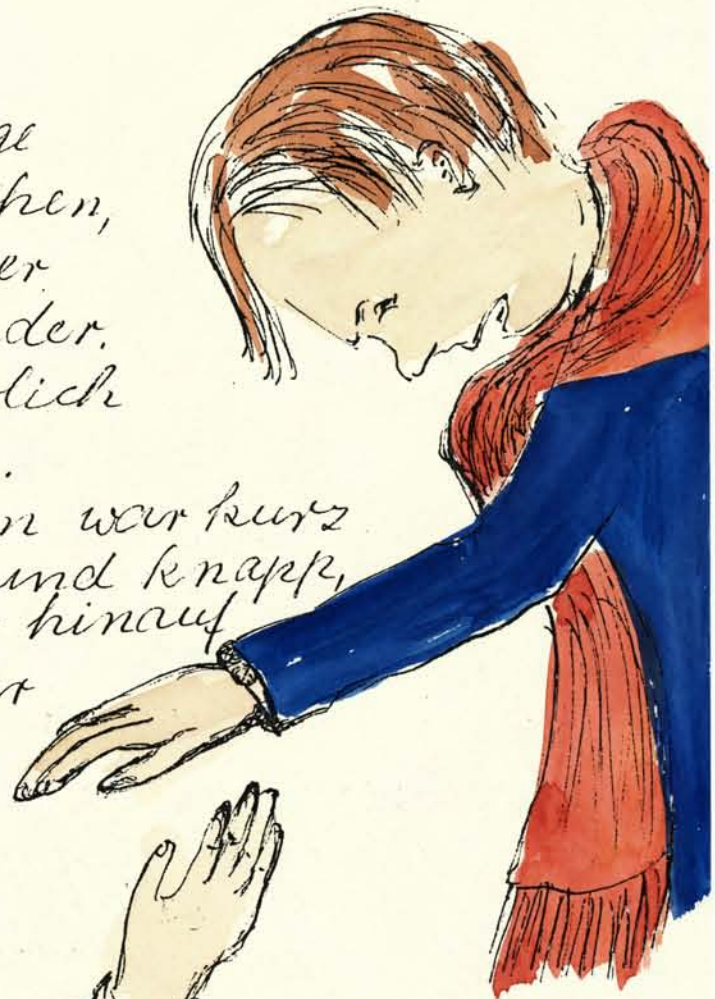 ge
hen,
er
der.
lich
.
n war kurz
und knapp,
hinauf
r